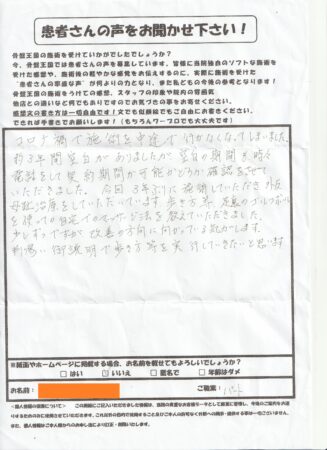 患者さんの声をお聞かせ下さい！
骨盤王国の施術を受けていかがでしたでしょうか？
今、骨盤王国では患者さんの声を募集しています。皆様に当院独自のソフトな施術を
受けた感想や、施術後の軽やかな感覚をお伝えするのに、実際に施術を受けた
“患者さんの率直な声”が何よりの力となり、また私どもの今後の参考となります！
骨盤王国の施術をうけての感想、スタッフの印象や院内の雰囲気
他店との違いなど何でもありですのでお気づきの事をお寄せください。
感想文の書き方は一切自由です！文でも似顔絵でもご自由にお書きください。
できれば手書きでお願いします！（もちろんワープロでも大丈夫です）
コロナ禍で施術を中途で行かなくなってしまいました。
約3年間空白がありましたが 空白の期間も時々
電話をして契約期間が可能かどうか確認をさせて
いただきました。今回3年ぶりに施術していただき 外反
母趾治療をしていただいています。歩き方等 足裏のゴルフボール
を使っての自宅でのマッサージ法を教えていただきました。
少しずつですが 改善の方向に向かっている気がします。
御説明で歩き方等を実行していきたいと思います
※紙面やホームページに掲載する場合、お名前を載せてもよろしいでしょうか？
□はい □いいえ □匿名で □年齢はダメ
お名前： ご職業：パート
＜個人情報の保護について＞